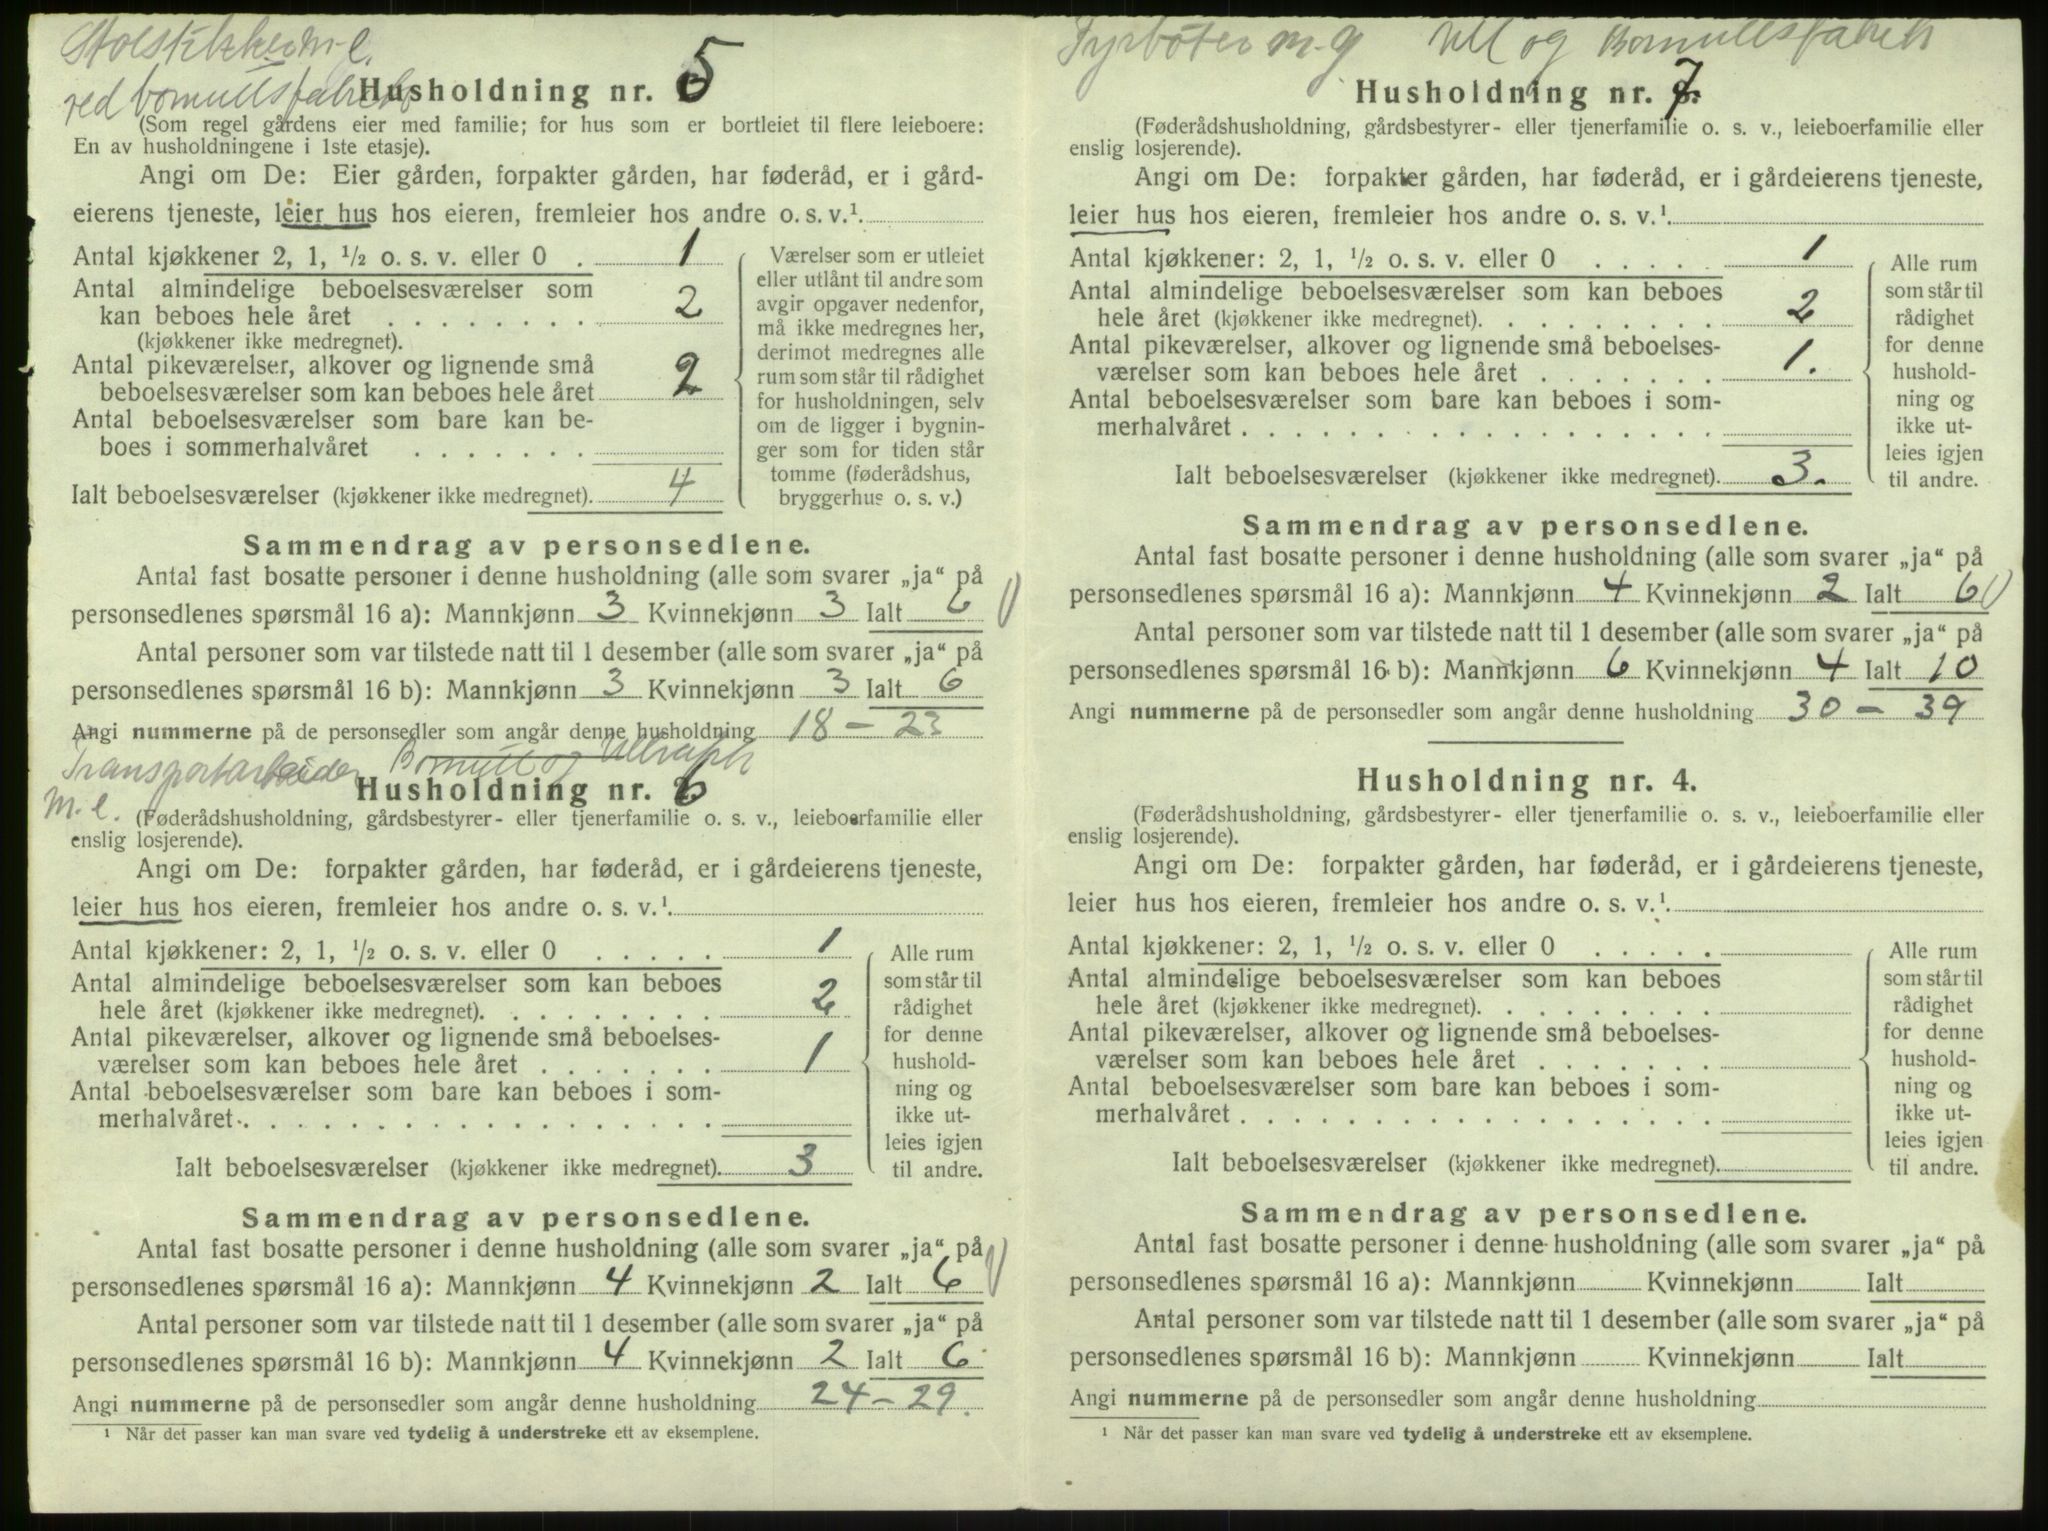 ved bomullsfabrik
Husholdning nr. 5
(Som regel gårdens eier med familie; for hus som er bortleiet til flere leieboere:
En av husholdningene i 1ste etasje).
Angi om De: Eier gården, forpakter gården, har føderåd, er i gård-
eierens tjeneste, leier hus hos eieren, fremleier hos andre o. s. v.¹
Antal kjøkkener 2, 1, ½ o. s. v. eller 0 . 1
Antal almindelige beboelsesværelser som
kan beboes hele året . . . . . . . . 2
(kjøkkener ikke medregnet).
Antal pikeværelser, alkover og lignende små
beboelsesværelser som kan beboes hele året 2
Antal beboelsesværelser som bare kan be-
boes i sommerhalvåret . . . . . . .
Ialt beboelsesværelser (kjøkkener ikke medregnet). 4
Værelser som er utleiet
eller utlånt til andre som
avgir opgaver nedenfor,
må ikke medregnes her,
derimot medregnes alle
rum som står til rådighet
for husholdningen, selv
om de ligger i bygnin-
ger som for tiden står
tomme (føderådshus,
bryggerhus o. s. v.)
Sammendrag av personsedlene.
Antal fast bosatte personer i denne husholdning (alle som svarer „ja“ på
personsedlenes spørsmål 16 a): Mannkjønn 3 Kvinnekjønn 3 Ialt 6
Antal personer som var tilstede natt til 1 desember (alle som svarer „ja“ på
personsedlenes spørsmål 16 b): Mannkjønn 3 Kvinnekjønn 3 Ialt 6
Angi nummerne på de personsedler som angår denne husholdning 18 - 23
Transportarbeider Bomull og
m.e.
Husholdning nr. 6
(Føderådshusholdning, gårdsbestyrer- eller tjenerfamilie o. s. v., leieboerfamilie eller
enslig losjerende).
Angi om De: forpakter gården, har føderåd, er i gårdeierens tjeneste,
leier hus hos eieren, fremleier hos andre o. s. v.¹
Antal kjøkkener: 2, 1, ½ o. s. v. eller 0 . . . . . 1
Antal almindelige beboelsesværelser som kan beboes
hele året (kjøkkener ikke medregnet). . . . . . . . . 2
Antal pikeværelser, alkover og lignende små beboelses-
værelser som kan beboes hele året . . . . . . . 1
Antal beboelsesværelser som bare kan beboes i som-
merhalvåret . . . . . . . . . . . . . . . . . .
Ialt beboelsesværelser (kjøkkener ikke medregnet). 3
Alle rum
som står til
rådighet
for denne
hushold-
ning og
ikke ut-
leies igjen
til andre.
Sammendrag av personsedlene.
Antal fast bosatte personer i denne husholdning (alle som svarer „ja“ på
personsedlenes spørsmål 16 a): Mannkjønn 4 Kvinnekjønn 2 Ialt 6
Antal personer som var tilstede natt til 1 desember (alle som svarer „ja“ på
personsedlenes spørsmål 16 b): Mannkjønn 4 Kvinnekjønn 2 Ialt 6
Angi nummerne på de personsedler som angår denne husholdning 24 - 29.
¹ Når det passer kan man svare ved tydelig å understreke ett av eksemplene.
Fyrbøter m.g Ull og Bomullsfabrik
Husholdning nr. 7
(Føderådshusholdning, gårdsbestyrer- eller tjenerfamilie o. s. v., leieboerfamilie eller
enslig losjerende).
Angi om De: forpakter gården, har føderåd, er i gårdeierens tjeneste,
leier hus hos eieren, fremleier hos andre o. s. v.¹
Antal kjøkkener: 2, 1, ½ o. s. v. eller 0 . . . . . 1
Antal almindelige beboelsesværelser som kan beboes
hele året (kjøkkener ikke medregnet). . . . . . . . . 2
Antal pikeværelser, alkover og lignende små beboelses-
værelser som kan beboes hele året . . . . . . . 1.
Antal beboelsesværelser som bare kan beboes i som-
merhalvåret . . . . . . . . . . . . . . . . . .
Ialt beboelsesværelser (kjøkkener ikke medregnet). 3.
Alle rum
som står til
rådighet
for denne
hushold-
ning og
ikke ut-
leies igjen
til andre.
Sammendrag av personsedlene.
Antal fast bosatte personer i denne husholdning (alle som svarer „ja“ på
personsedlenes spørsmål 16 a): Mannkjønn 4 Kvinnekjønn 2 Ialt 6
Antal personer som var tilstede natt til 1 desember (alle som svarer „ja“ på
personsedlenes spørsmål 16 b): Mannkjønn 6 Kvinnekjønn 4 Ialt 10
Angi nummerne på de personsedler som angår denne husholdning 30 - 39
Husholdning nr. 4.
(Føderådshusholdning, gårdsbestyrer- eller tjenerfamilie o. s. v., leieboerfamilie eller
enslig losjerende).
Angi om De: forpakter gården, har føderåd, er i gårdeierens tjeneste,
leier hus hos eieren, fremleier hos andre o. s. v.¹
Antal kjøkkener: 2, 1, ½ o. s. v. eller 0 . . . . .
Antal almindelige beboelsesværelser som kan beboes
hele året (kjøkkener ikke medregnet). . . . . . . . .
Antal pikeværelser, alkover og lignende små beboelses-
værelser som kan beboes hele året . . . . . . .
Antal beboelsesværelser som bare kan beboes i som-
merhalvåret . . . . . . . . . . . . . . . . . .
Ialt beboelsesværelser (kjøkkener ikke medregnet).
Alle rum
som står til
rådighet
for denne
hushold-
ning og
ikke ut-
leies igjen
til andre.
Sammendrag av personsedlene.
Antal fast bosatte personer i denne husholdning (alle som svarer „ja“ på
personsedlenes spørsmål 16 a): Mannkjønn Kvinnekjønn Ialt
Antal personer som var tilstede natt til 1 desember (alle som svarer „ja“ på
personsedlenes spørsmål 16 b): Mannkjønn Kvinnekjønn Ialt
Angi nummerne på de personsedler som angår denne husholdning
¹ Når det passer kan man svare ved tydelig å understreke ett av eksemplene.